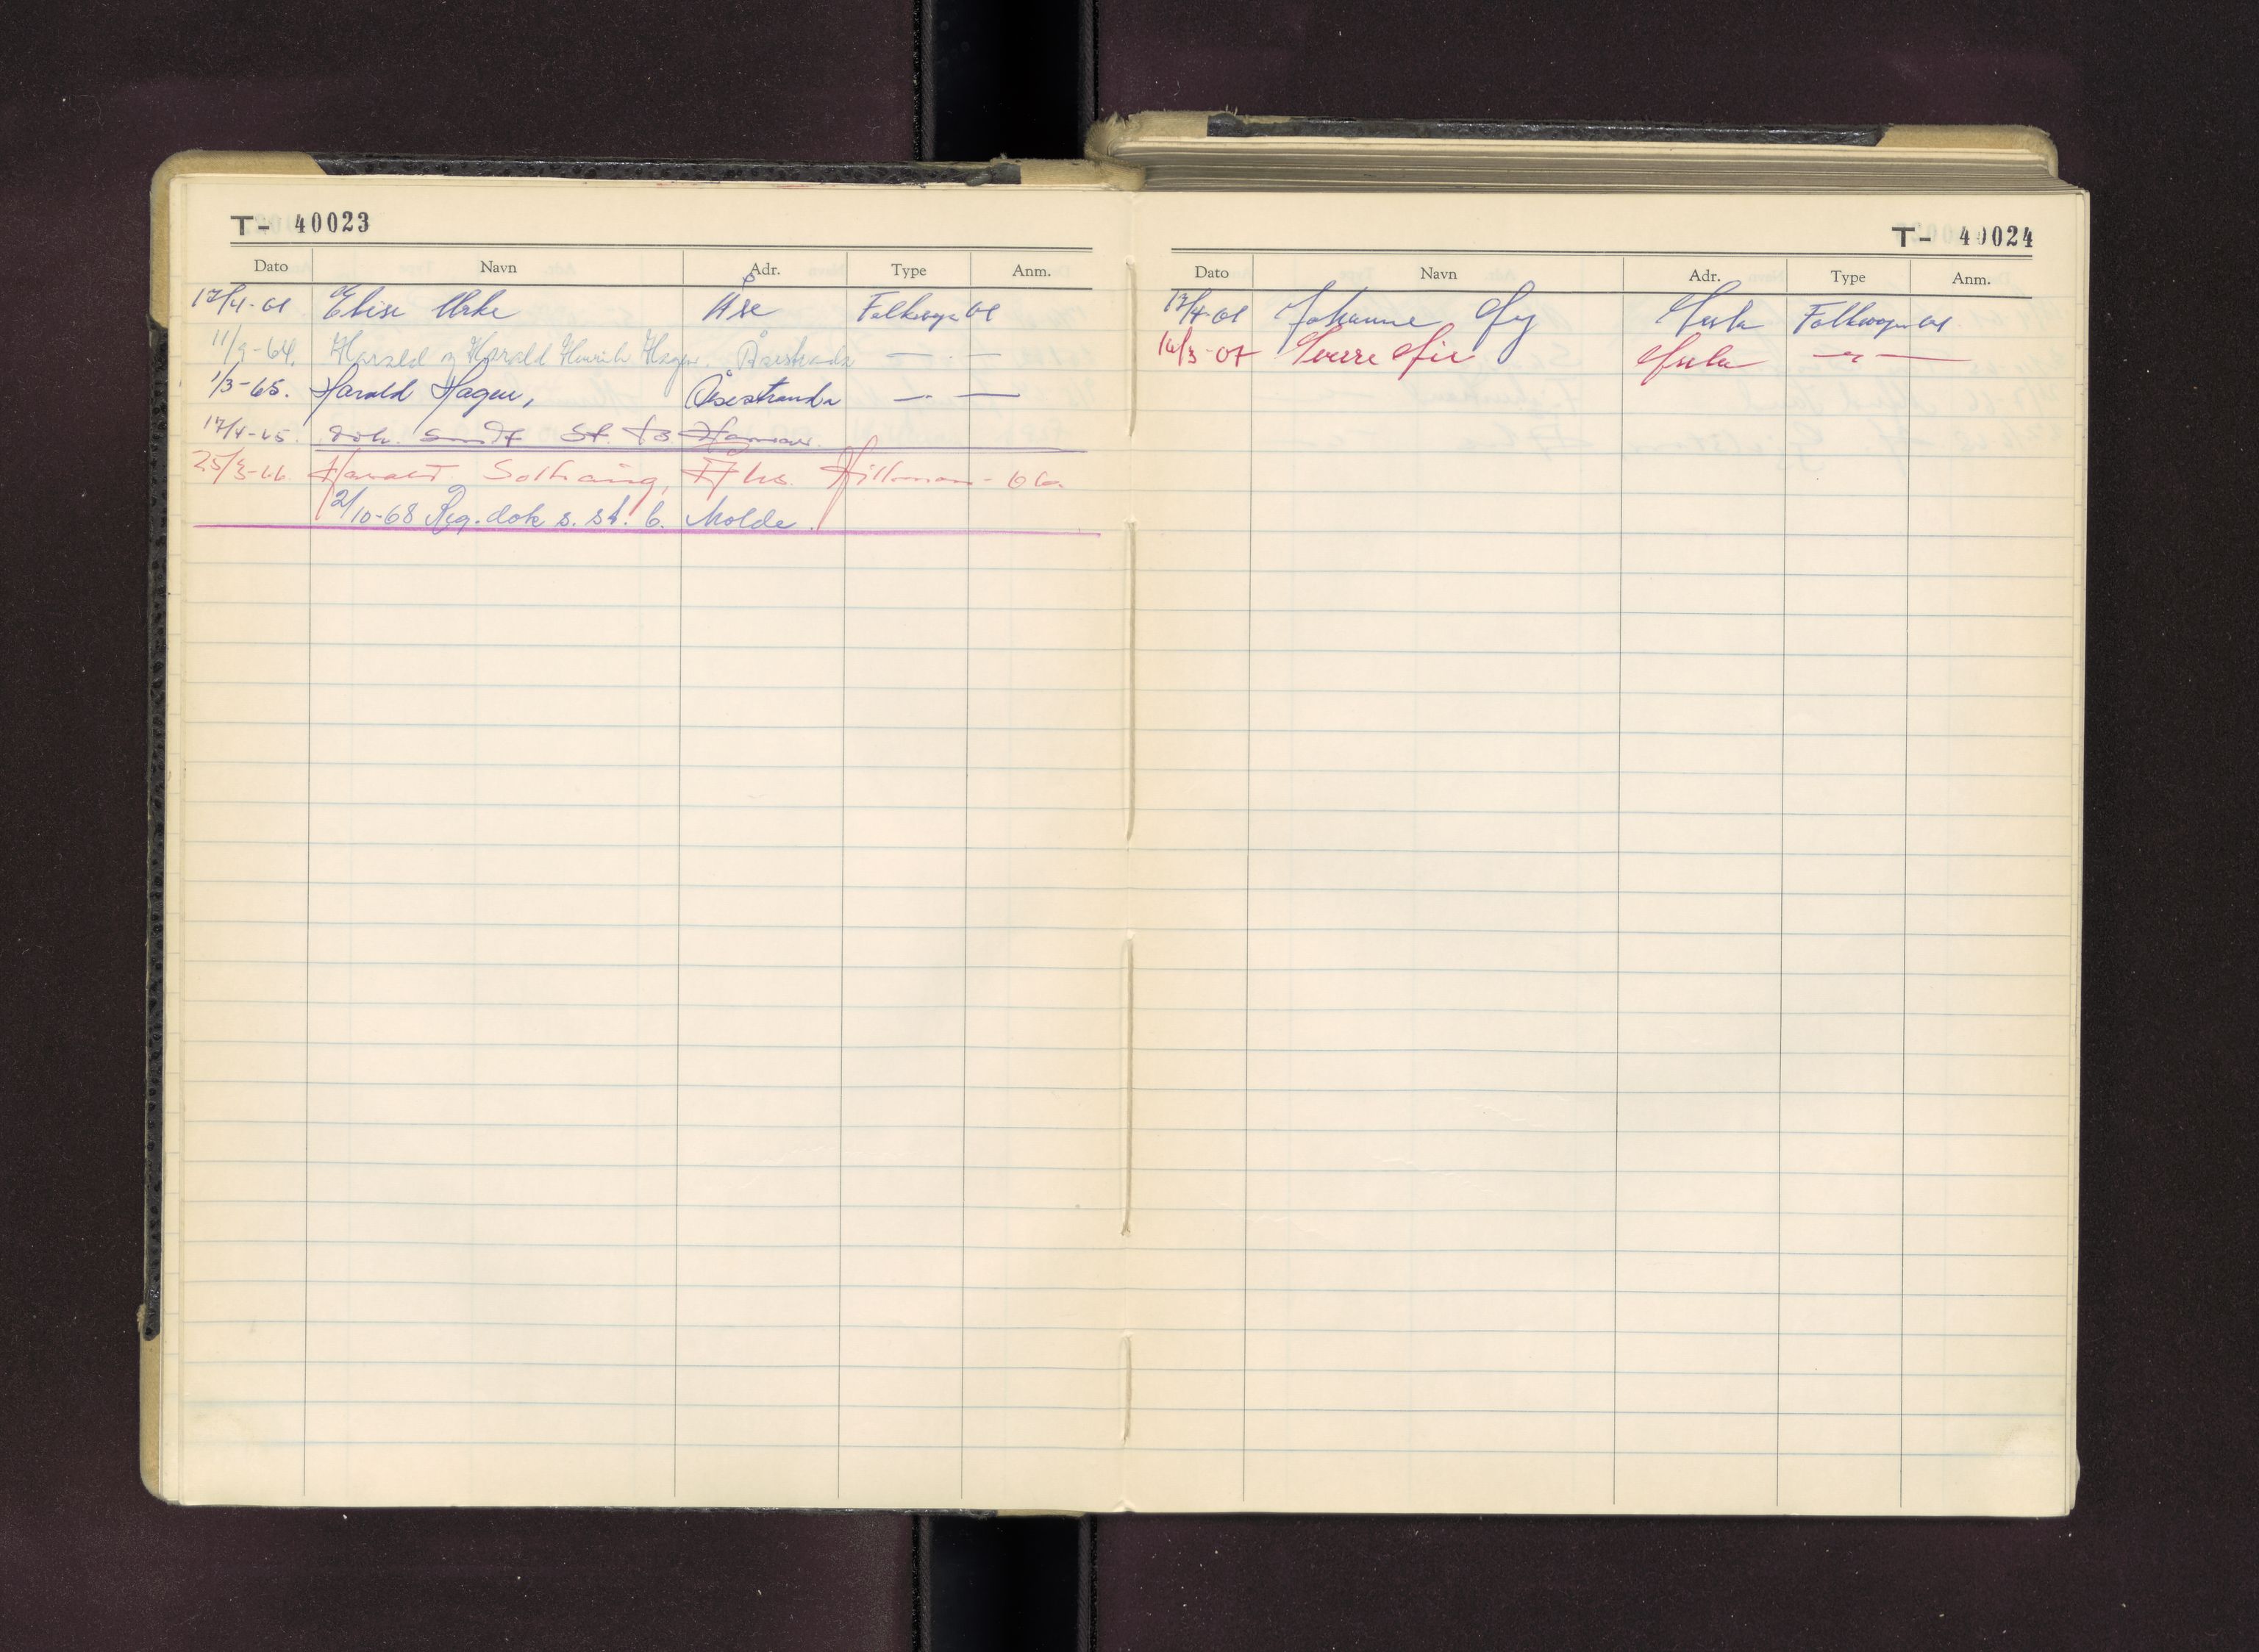 T- 40023
Dato Navn Adr. Type Anm.
17/4-61 Elise Urke Åse Folkevogn 61
11/9-64. Harald og Harald Henrik Hagen. Åsestranda — . —
1/3-65. Harald Hagen, Åsestranda — . —
17/4-65. dok. sendt St. b. Hamar.
25/3-66. Harald Solhaug, Hillman - 66
21/10-68 Reg. dok s. st. b. Molde.
T- 40024
Dato Navn Adr. Type Anm.
17/4-61 Johanne Folkevogn 61
16/3-67 Sverre — " —